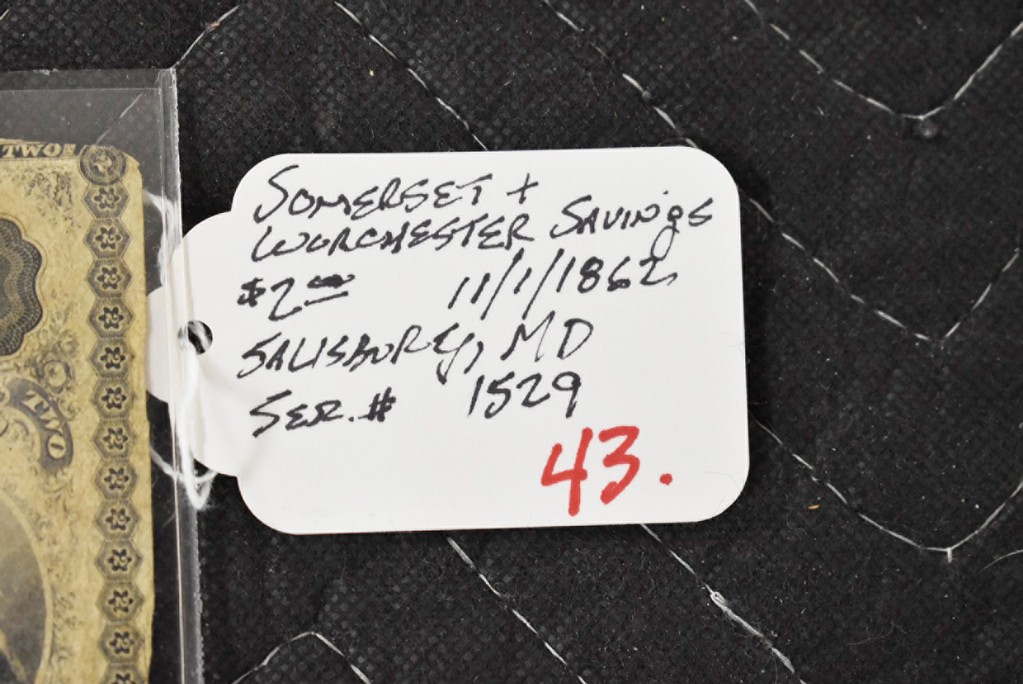 TWO
TWO
SOMERSET +
WORCHESTER SAVINGS
$2.00 11/1/1862
SALISBURY, MD
SER. # 1529
43.